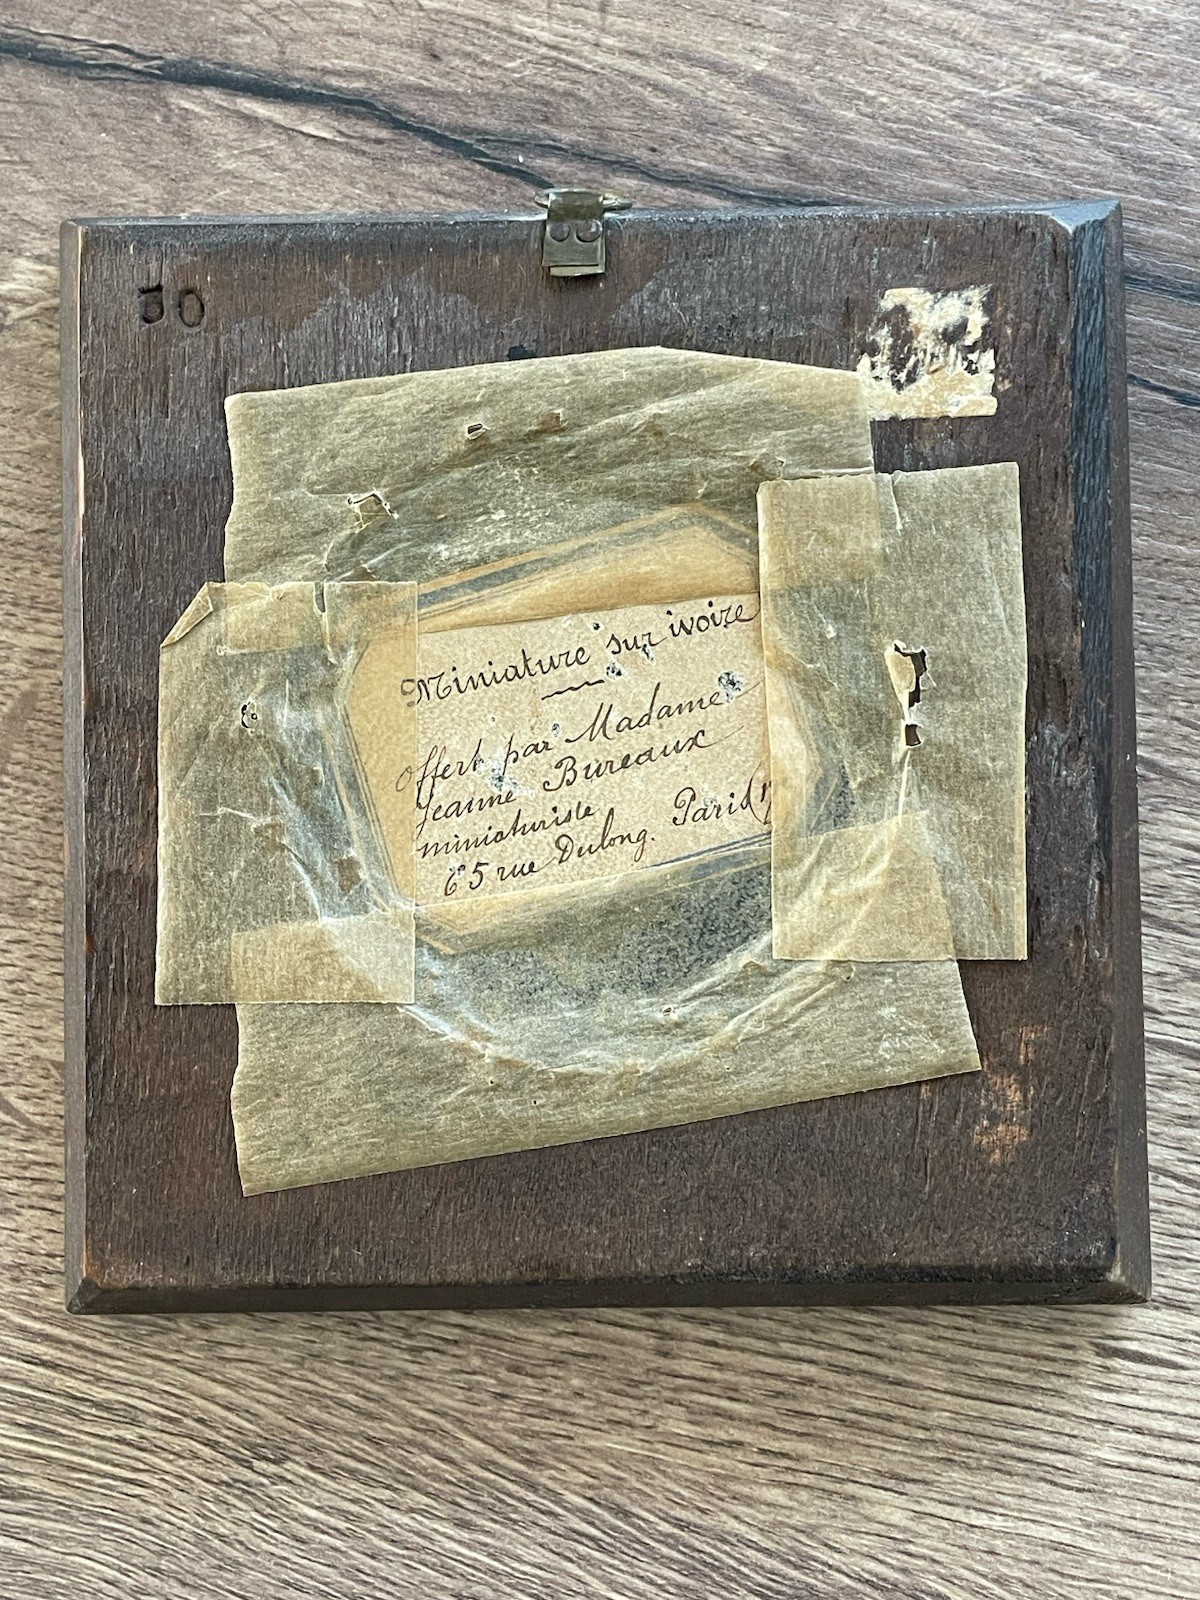 30
Miniature sur ivoire
offert par Madame
Jeanne Bureaux
miniaturiste
65 rue Dulong. Paris (17